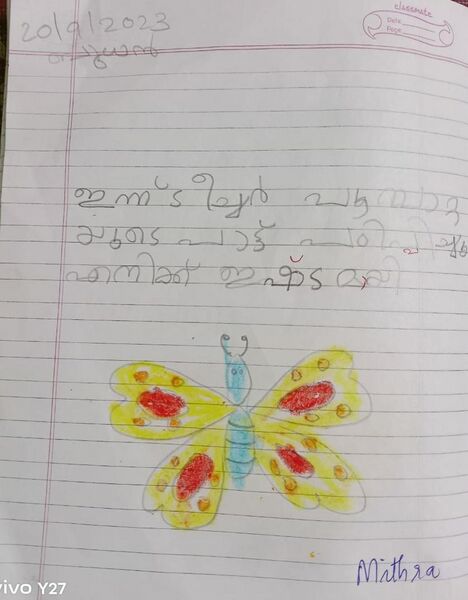 classmate
Date
Page
20/9/2023
ബുധൻ
ഇന്ന് ടീച്ചർ പൂമ്പാറ്റ
യുടെ പാട്ട് പഠിപ്പിച്ചു
എനിക്ക് ഇഷ്ടമായി
Mithra
vivo Y27